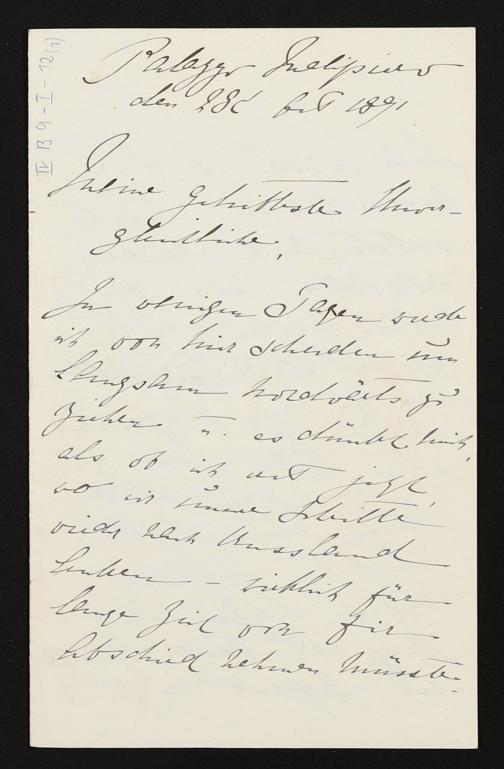 IV B 9-I-12(1)
Palazzo
den 28t Oct 1891
Meine geliebteste Unver-
gleichliche,
In wenigen Tagen werde
ich von hier scheiden um
langsam nordwärts zu
ziehen u. es dünkt mich,
als ob ich erst jetzt,
wo ich meine Schritte
wieder nach Russland
lenken – wirklich für
lange Zeit von Dir
Abschied nehmen müsste.